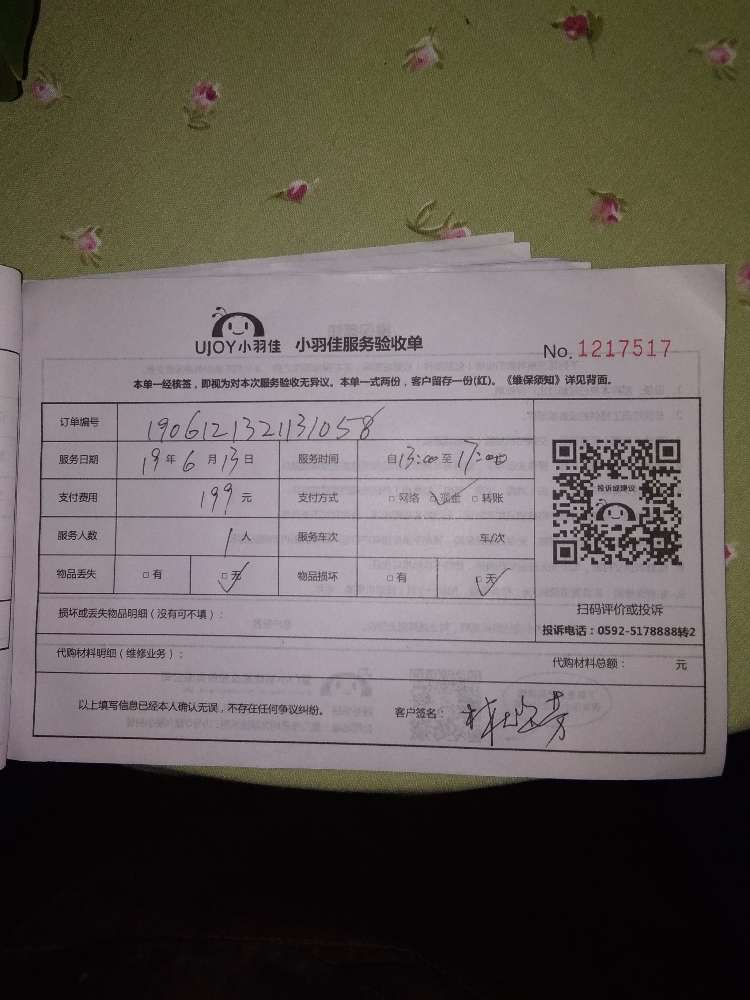 UJOY小羽佳 小羽佳服务验收单 No. 1217517
本单一经核签，即视为对本次服务验收无异议。本单一式两份，客户留存一份(红)。《维保须知》详见背面。
订单编号 1906121321131058
服务日期 19 年 6 月 13 日 服务时间 自 13:00 至 17:00
支付费用 199 元 支付方式 □ 网络 □ 现金 □ 转账
投诉或建议
服务人数 1 人 服务车次 车/次
物品丢失 □ 有 □ 无 物品损坏 □ 有 □ 无
扫码评价或投诉
损坏或丢失物品明细（没有可不填）：
投诉电话：0592-5178888转2
代购材料明细（维修业务）： 代购材料总额： 元
以上填写信息已经本人确认无误，不存在任何争议纠纷。 客户签名：